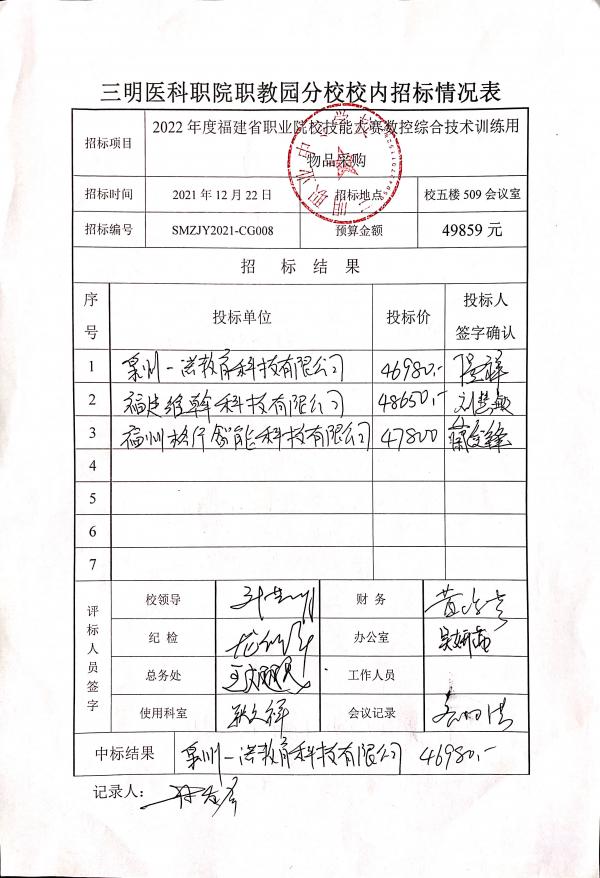 三明医科职院职教园分校校内招标情况表
招标项目 2022 年度福建省职业院校技能大赛数控综合技术训练用
物品采购
招标时间 2021 年 12 月 22 日 招标地点 校五楼 509 会议室
招标编号 SMZJY2021-CG008 预算金额 49859 元
招 标 结 果
序号 投标单位 投标价 投标人
签字确认
1 泉州一诺教育科技有限公司 46980.-
2 福建维幹科技有限公司 48650.- 刘慧敏
3 科技有限公司 47800
4
5
6
7
评标人员签字
校领导 财 务
纪检 办公室
总务处 工作人员
使用科室 会议记录
中标结果 泉州一诺教育科技有限公司 46980.-
记录人：